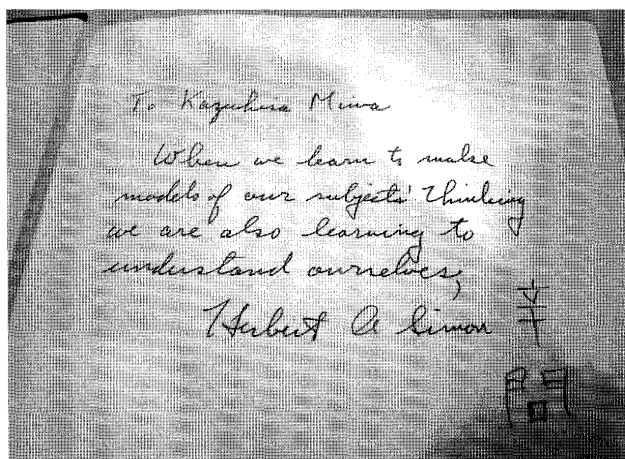 To Kazuhisa Miwa
When we learn to make
models of our subjects' thinking
we are also learning to
understand ourselves,
Herbert A Simon
問